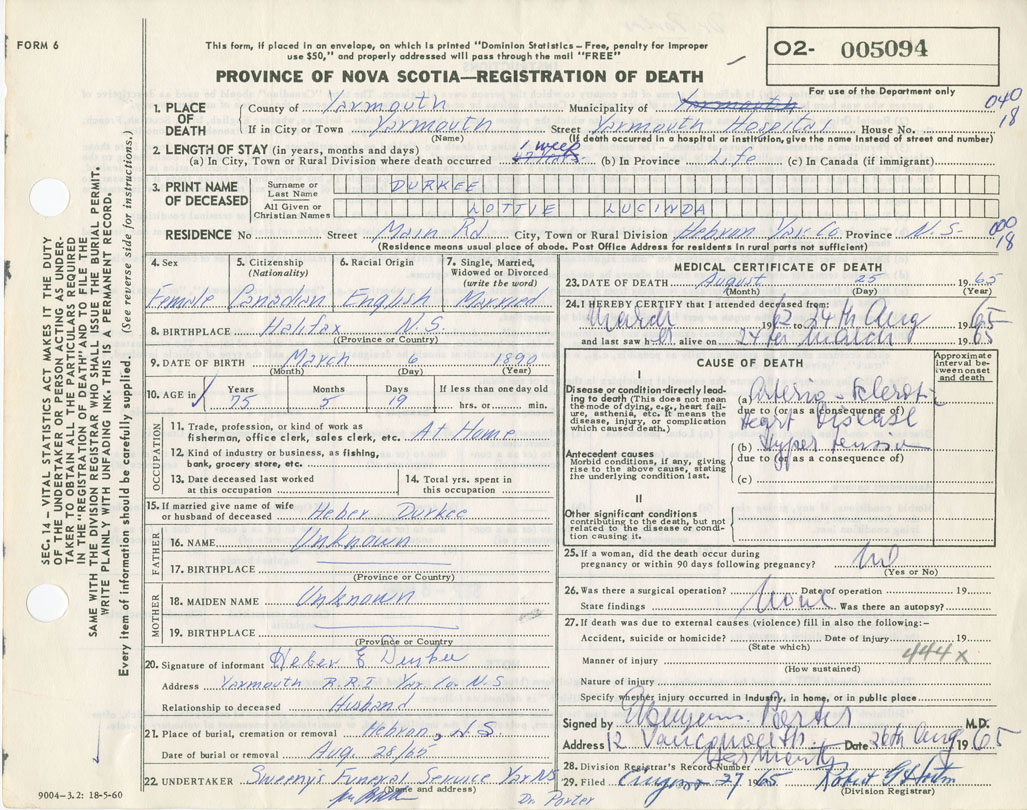 FORM 6
This form, if placed in an envelope, on which is printed "Dominion Statistics – Free, penalty for improper
use $50," and properly addressed will pass through the mail "FREE"
PROVINCE OF NOVA SCOTIA—REGISTRATION OF DEATH
02- 005094
For use of the Department only
040
18
1. PLACE OF DEATH
County of Yarmouth Municipality of Yarmouth
If in City or Town Yarmouth Street Yarmouth Hospital House No.
(Name) (If death occurred in a hospital or institution, give name instead of street and number)
2. LENGTH OF STAY (in years, months and days) 1 week
(a) In City, Town or Rural Division where death occurred (b) In Province Life (c) In Canada (if immigrant)
3. PRINT NAME OF DECEASED
Surname or Last Name DURKEE
All Given or Christian Names LOTTIE LUCINDA
RESIDENCE No Street Main Rd City, Town or Rural Division Hebron Yar. Co. Province N.S.
000
18
(Residence means usual place of abode. Post Office Address for residents in rural parts not sufficient)
4. Sex
Female
5. Citizenship (Nationality)
Canadian
6. Racial Origin
English
7. Single, Married, Widowed or Divorced (write the word)
Married
8. BIRTHPLACE Halifax N.S.
(Province or Country)
9. DATE OF BIRTH March 6 1890
(Month) (Day) (Year)
10. AGE in Years 75 Months 5 Days 19 If less than one day old hrs. or min.
OCCUPATION
11. Trade, profession, or kind of work as
fisherman, office clerk, sales clerk, etc. At Home
12. Kind of industry or business, as fishing,
bank, grocery store, etc.
13. Date deceased last worked at this occupation
14. Total yrs. spent in this occupation
15. If married give name of wife
or husband of deceased Heber Durkee
FATHER
16. NAME Unknown
17. BIRTHPLACE
(Province or Country)
MOTHER
18. MAIDEN NAME Unknown
19. BIRTHPLACE
(Province or Country
20. Signature of informant Heber E Durkee
Address Yarmouth R.R.1 Yar. Co. N.S
Relationship to deceased Husband
21. Place of burial, cremation or removal Hebron, N.S.
Date of burial or removal Aug. 28/65
22. UNDERTAKER Sweenys Funeral Service Yar NS
(Name and address)
Dr. Porter
MEDICAL CERTIFICATE OF DEATH
23. DATE OF DEATH August 25 1965
(Month) (Day) (Year)
24. I HEREBY CERTIFY that I attended deceased from:
March 1962 to 24th Aug 1965
and last saw her alive on 24th March 1965
CAUSE OF DEATH
Approximate interval between onset and death
I
Disease or condition directly leading to death (This does not mean
the mode of dying, e.g., heart failure, asthenia, etc. It means the
disease, injury, or complication
which caused death.)
(a) Arterio-Sclerotic
due to (or as a consequence of)
Heart Disease
(b) Hypertension
due to (or as a consequence of)
(c)
Antecedent causes
Morbid conditions, if any, giving
rise to the above cause, stating
the underlying condition last.
II
Other significant conditions
contributing to the death, but not
related to the disease or condition causing it.
25. If a woman, did the death occur during
pregnancy or within 90 days following pregnancy? No
(Yes or No)
26. Was there a surgical operation? None Date of operation 19
State findings Was there an autopsy?
27. If death was due to external causes (violence) fill in also the following:–
Accident, suicide or homicide? Date of injury 19
(State which)
444x
Manner of injury
(How sustained)
Nature of injury
Specify whether injury occurred in industry, in home, or in public place
Signed by Porter M.D.
Address 12 Vancouver St. Date 26th Aug 1965
Yarmouth
28. Division Registrar's Record Number
29. Filed August 27 1965 Robert
(Division Registrar)
SEC. 14 – VITAL STATISTICS ACT MAKES IT THE DUTY
OF THE UNDERTAKER OR PERSON ACTING AS UNDERTAKER TO OBTAIN ALL THE PARTICULARS REQUIRED
IN THE "REGISTRATION OF DEATH" AND TO FILE THE
SAME WITH THE DIVISION REGISTRAR WHO SHALL ISSUE THE BURIAL PERMIT.
WRITE PLAINLY WITH UNFADING INK. THIS IS A PERMANENT RECORD.
Every item of information should be carefully supplied. (See reverse side for instructions.)
9004-3.2: 18-5-60